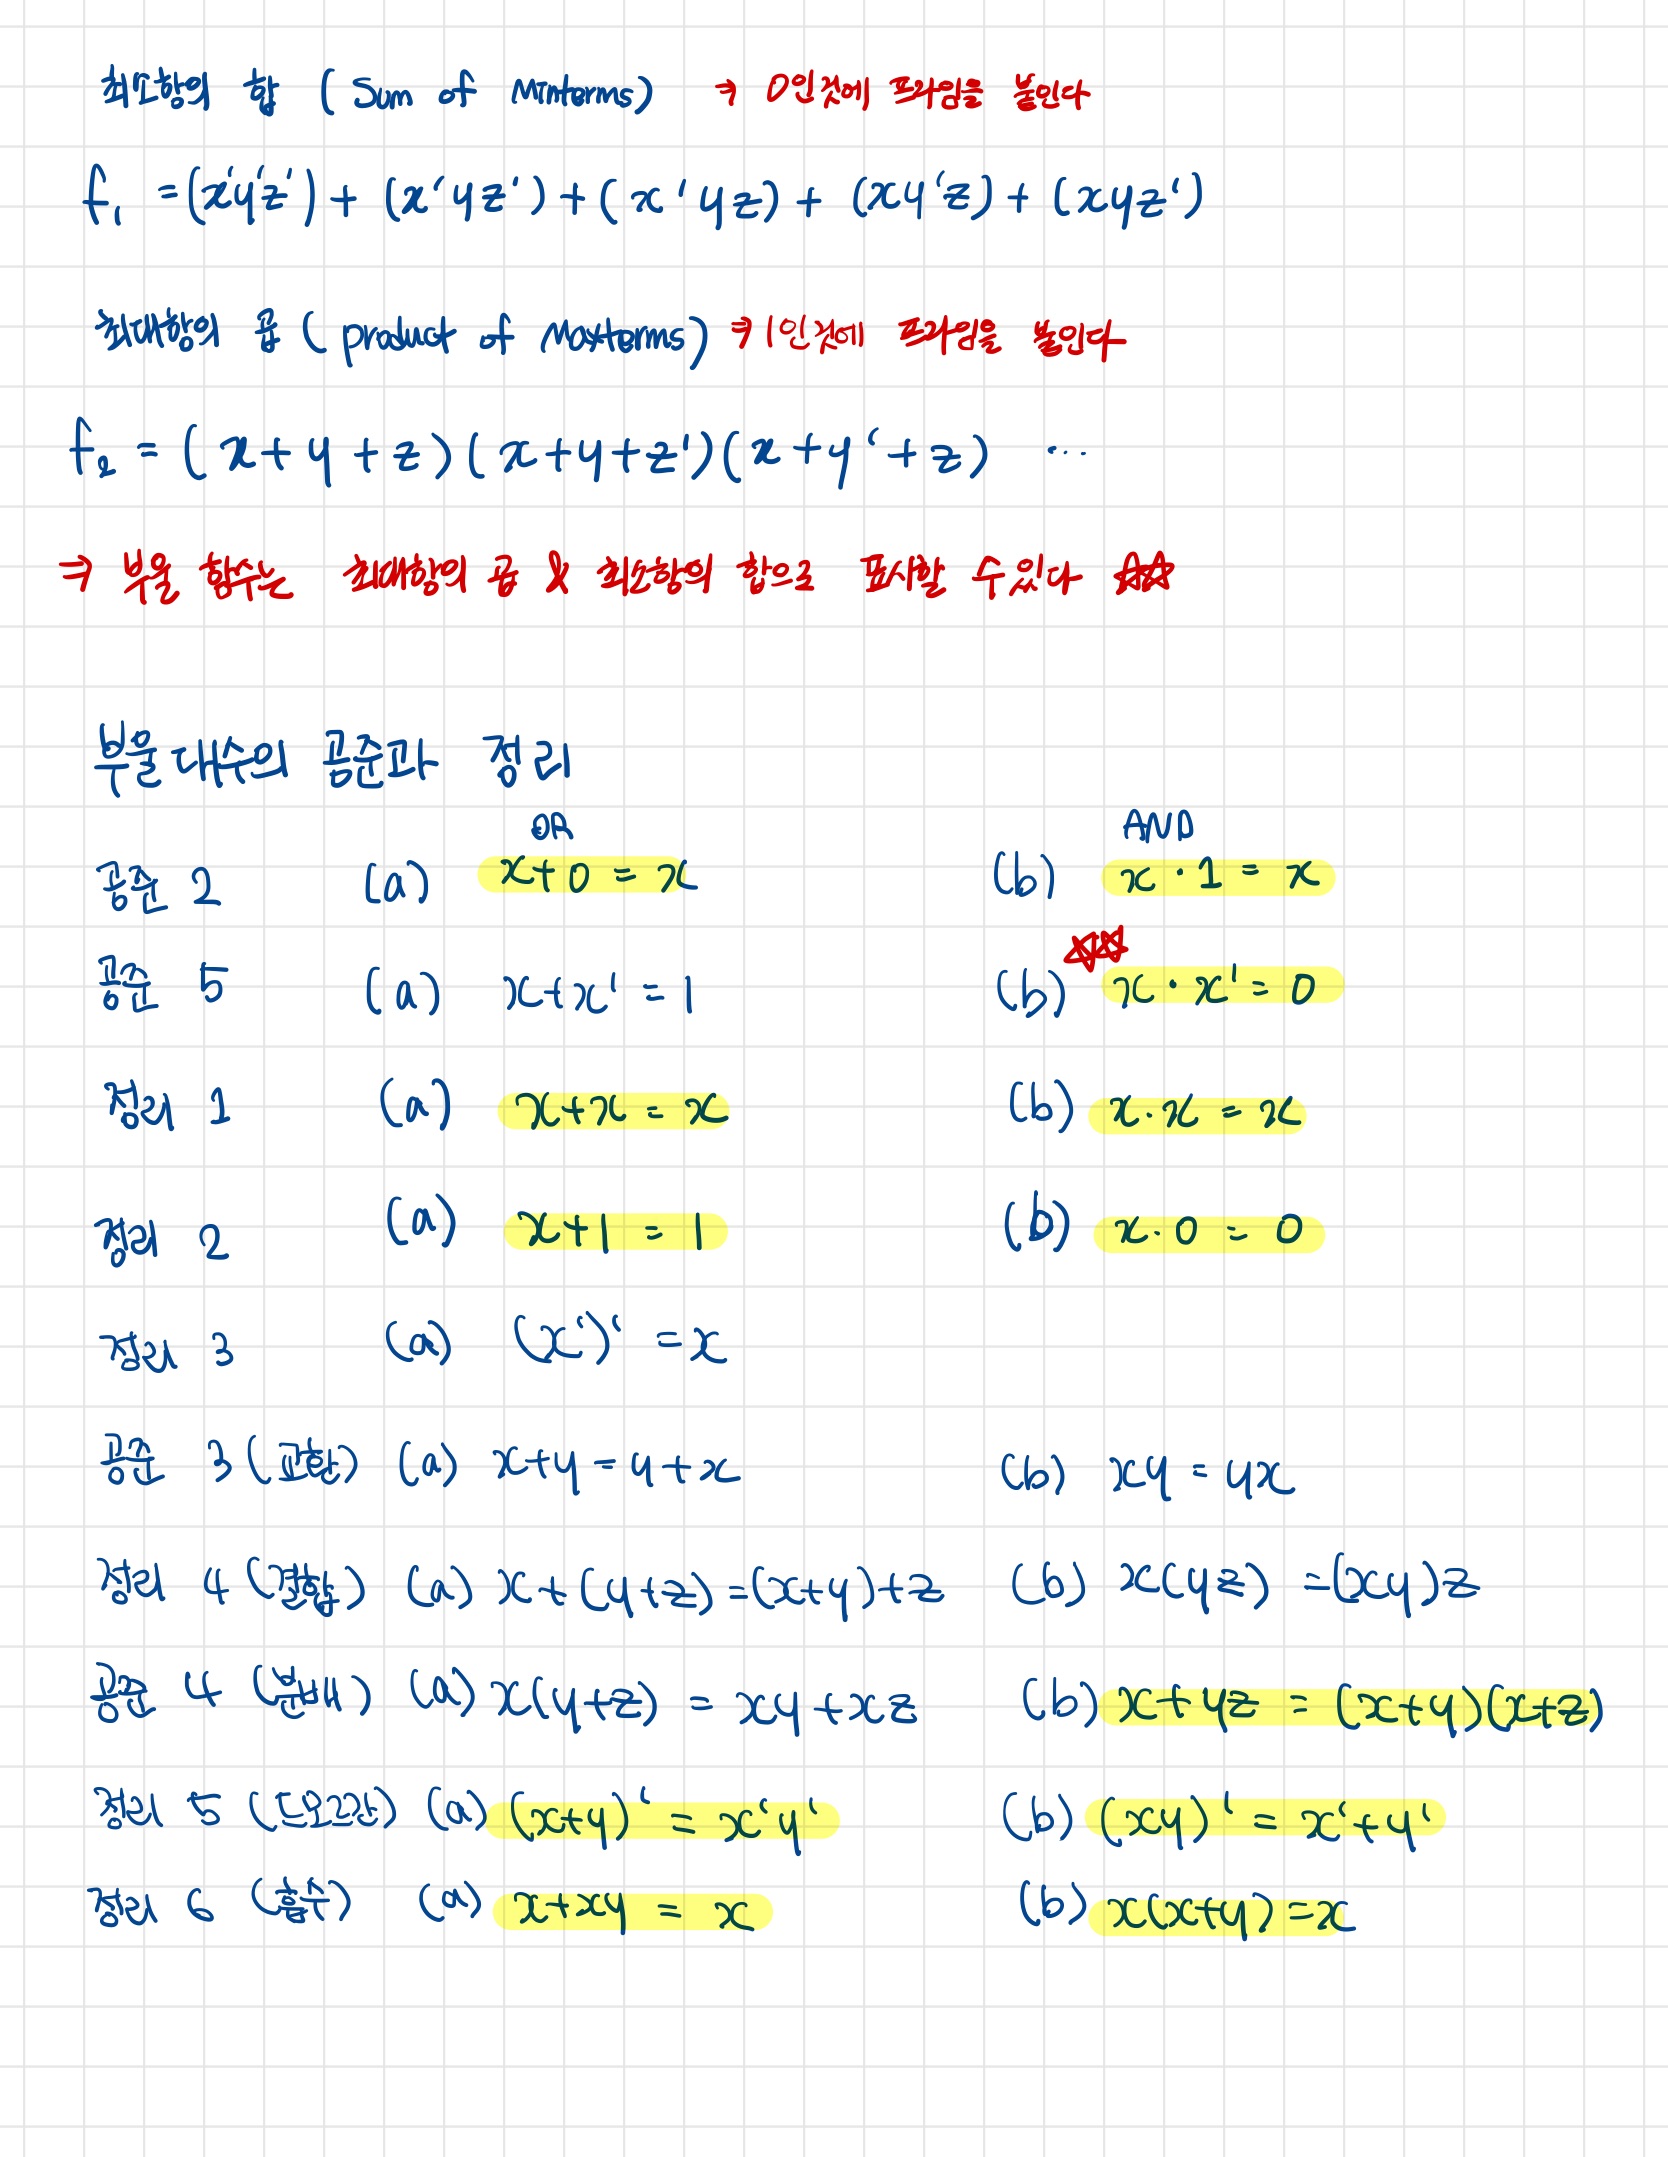 최소항의 합 ( Sum of Minterms) ⇒ 0인것에 프라임을 붙인다
f₁ = (x'y'z') + (x'yz') + (x'yz) + (xy'z) + (xyz')
최대항의 곱 ( product of Maxterms) ⇒ 1인것에 프라임을 붙인다
f₂ = (x+y+z)(x+y+z')(x+y'+z) ...
⇒ 부울 함수는 최대항의 곱 & 최소항의 합으로 표시할 수 있다 ☆☆
부울대수의 공준과 정리
OR AND
공준 2 (a) x+0 = x (b) x · 1 = x
☆☆
공준 5 (a) x+x' = 1 (b) x · x' = 0
정리 1 (a) x+x = x (b) x · x = x
정리 2 (a) x+1 = 1 (b) x · 0 = 0
정리 3 (a) (x')' = x
공준 3 (교환) (a) x+y = y+x (b) xy = yx
정리 4 (결합) (a) x+(y+z) = (x+y)+z (b) x(yz) = (xy)z
공준 4 (분배) (a) x(y+z) = xy+xz (b) x+yz = (x+y)(x+z)
정리 5 (드모르간) (a) (x+y)' = x'y' (b) (xy)' = x'+y'
정리 6 (흡수) (a) x+xy = x (b) x(x+y) = x